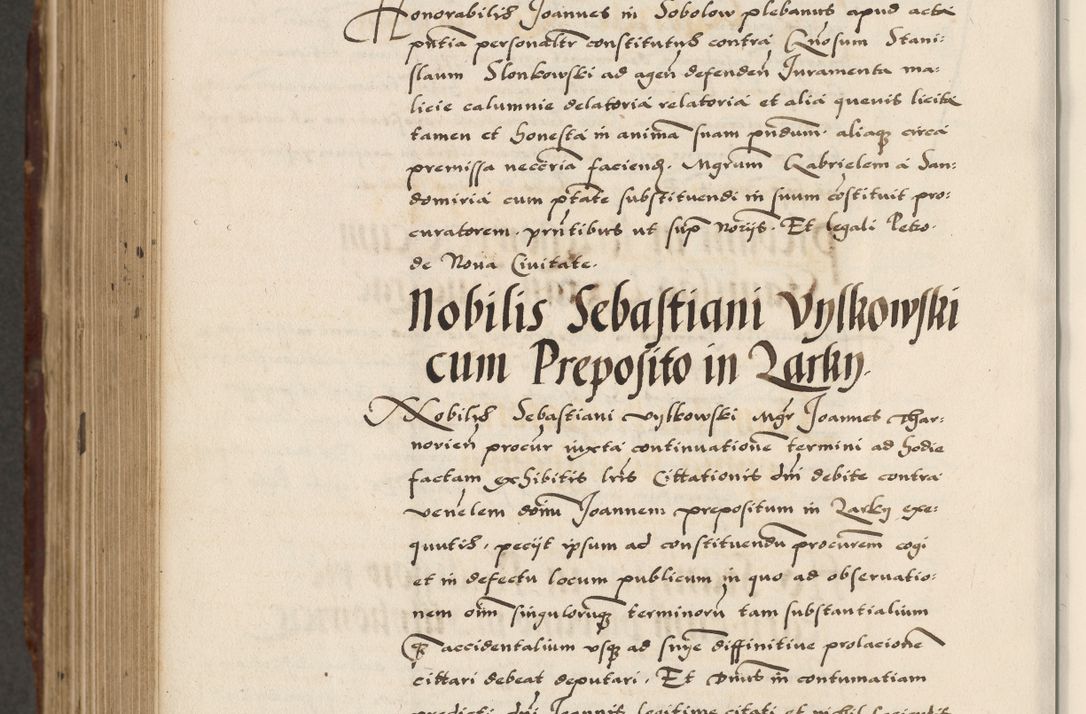 Honorabilis Joannes in Sobolow plebanus apud acta
pntia personaltr constitutus contra Gnosum Stani-
slaum Slonkowski ad agen defenden Juramenta ma-
licie calumnie delatoria relatoria et alia quevis licita
tamen et honesta in anima suam pndum aliaq circa
premissa neceria faciend. Mgrum Gabrielem a San-
domiria cum ptate substituendi in suum costituit pro-
curatorem. pntibus ut sup Norijs. Et legali Petro
de Nova Civitate.
Nobilis Sebastiani Vylkowski
cum Preposito in Zarky.
Nobilis Sebastiani Vylkowski Mgr Joannes Thar-
norien procur iuxta continuatione termini ad hodie
factam exhibitis lris Cittationis dni debite contra
venelem donu Joannem prepositum in Zarky exe-
quutis, pecijt ipsum ad constituendu procurem cogi
et in defectu locum publicum in quo ad observatio-
nem oim singulorumq terminoru tam substantialium
q accidentalium usq ad snie diffinitive prolacione
cittari debeat deputari. Et Dnus in contumatiam
predicti dni Joannis legitime citati et nichil